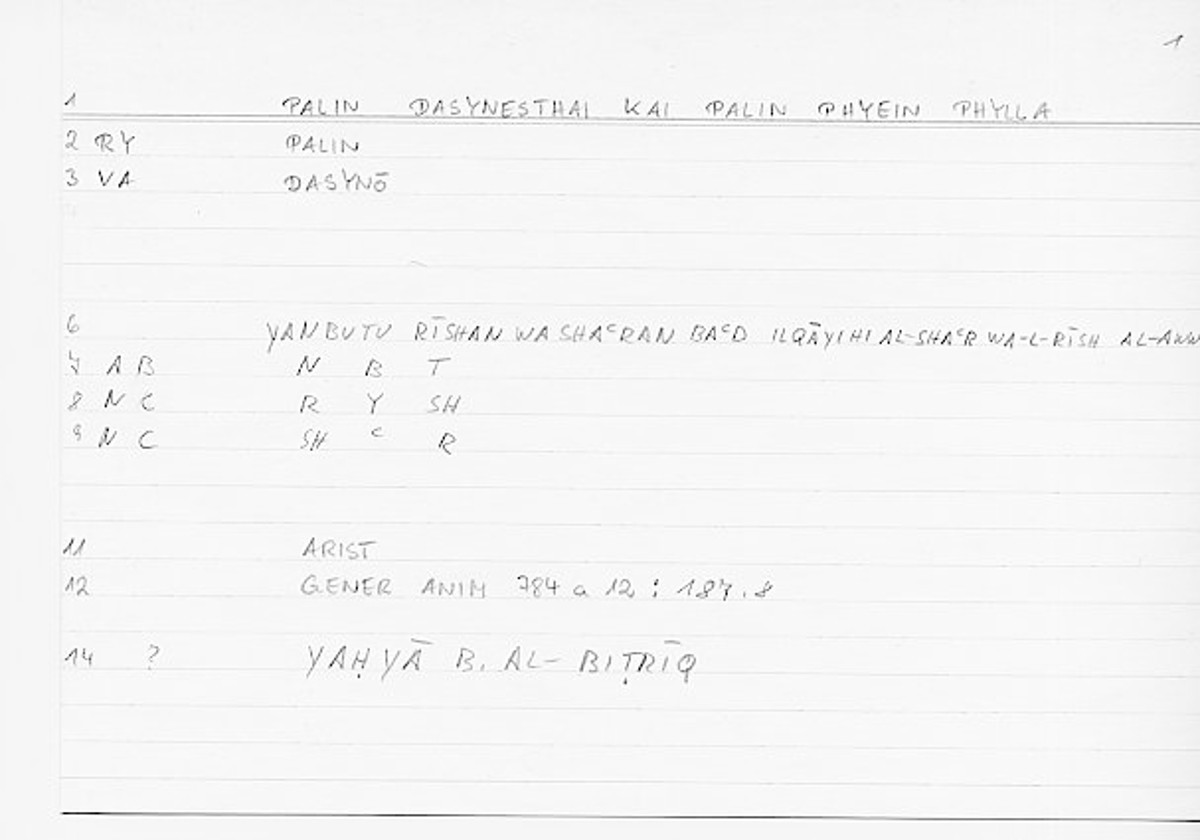 1
1 PALIN DASYNESTHAI KAI PALIN PHYEIN PHYLLA
2 RY PALIN
3 VA DASYNŌ
6 YANBUTU RĪSHAN WA SHAᶜRAN BAᶜD ILQĀYIHI AL-SHAᶜR WA-L-RĪSH AL-AWW
7 A B N B T
8 N C R Y SH
9 N C SH ᶜ R
11 ARIST
12 GENER ANIM 784 a 12 : 187.8
14 ? YAḤYĀ B. AL-BIṬRĪQ